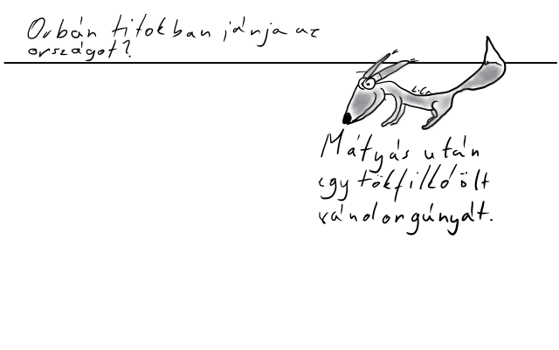 Orbán titokban járja az
országot?
Mátyás után
egy tökfilkó ölt
vándorgúnyát.